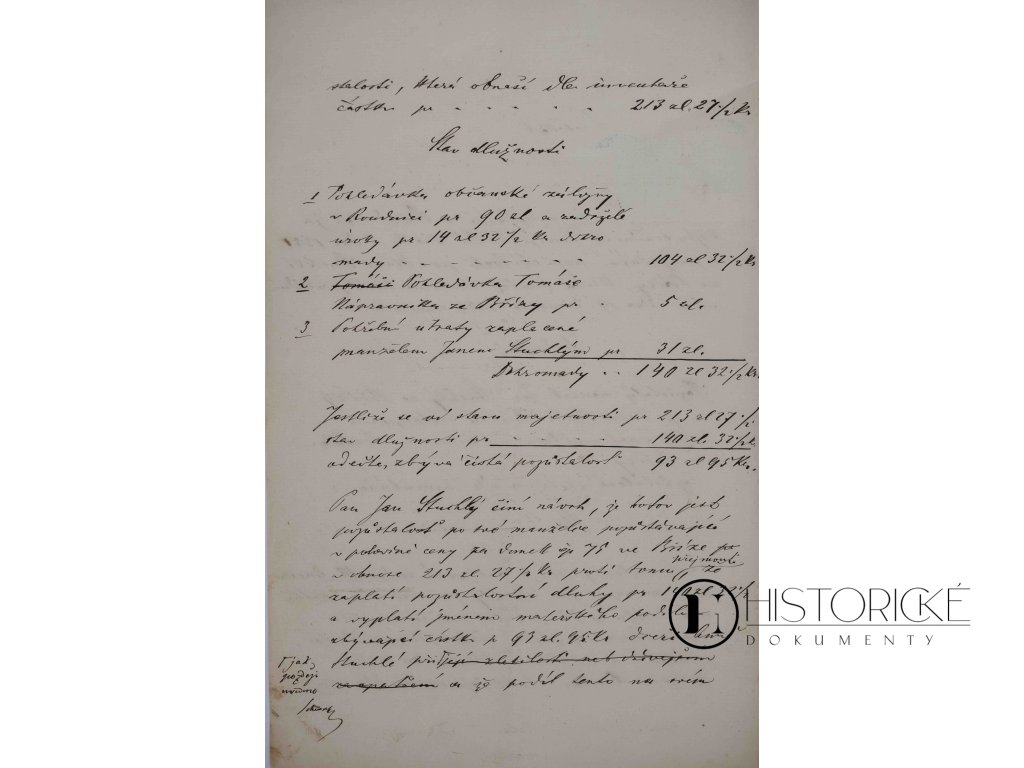 stalosti, která obnáší dle inventáře
částku pr - - - - - 213 zl. 27 1/2 Kr
Stav dlužnosti
1 Pohledávka občanské záložny
v Roudnici pr 90 zl a zadržělé
úroky pr 14 zl 32 1/2 Kr dohro
mady - - - - 104 zl 32 1/2 Kr
2 Tomáši Pohledávka Tomáše
Nápravníka ze Břízy pr - - 5 zl.
3 Pohřební útraty zaplacené
manželem Janem Stuchlým pr 31 zl.
Dohromady - - 140 zl 32 1/2 Kr.
Jestliže se od stavu majetnosti pr 213 zl 27 1/2
stav dlužnosti pr - - - - 140 zl. 32 1/2 Kr
odečte, zbývá čistá pozůstalosť 93 zl 95 Kr.
Pan Jan Stuchlý činí návrh, že hotov jest
pozůstalosť po své manželce pozůstávající
v polovině ceny za domek čp 75 ve Bříze
přijmouti
v obnose 213 zl. 27 1/2 Kr proti tomu, že
zaplatí pozůstalostní dluhy pr
a vyplatí jménem mateřského
zbývající částku p 93 zl. 95 Kr dceři
Stuchlé při její zletilosti neb
zaopatření a že podíl tento na svém
jak
později
uvedeno
HISTORICKÉ
DOKUMENTY